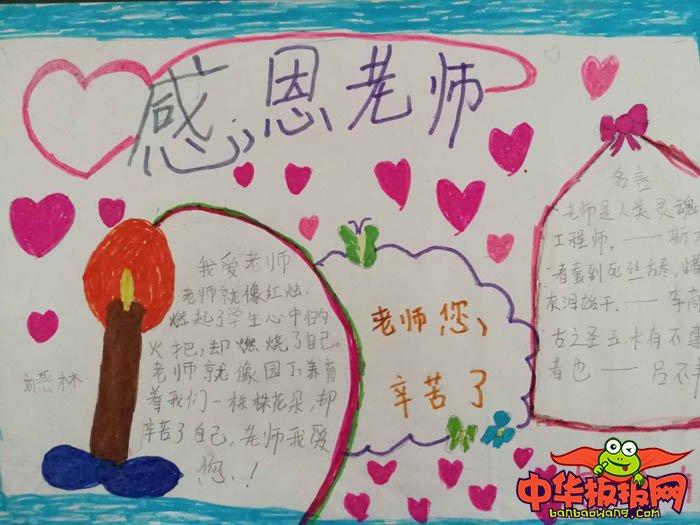 感恩老师
我爱老师
老师就像红烛,
燃起了学生心中的
火把,却燃烧了自己。
老师就像园丁养育
着我们一株株花朵,却
辛苦了自己,老师我爱
您!
刘燕林
老师您
辛苦了
名言
老师是人类灵魂
工程师。——斯
春蚕到死丝方尽,蜡
灰泪始干。——李
古之圣王未有不尊
者也——吕不
中华板报网
banbaowang.com